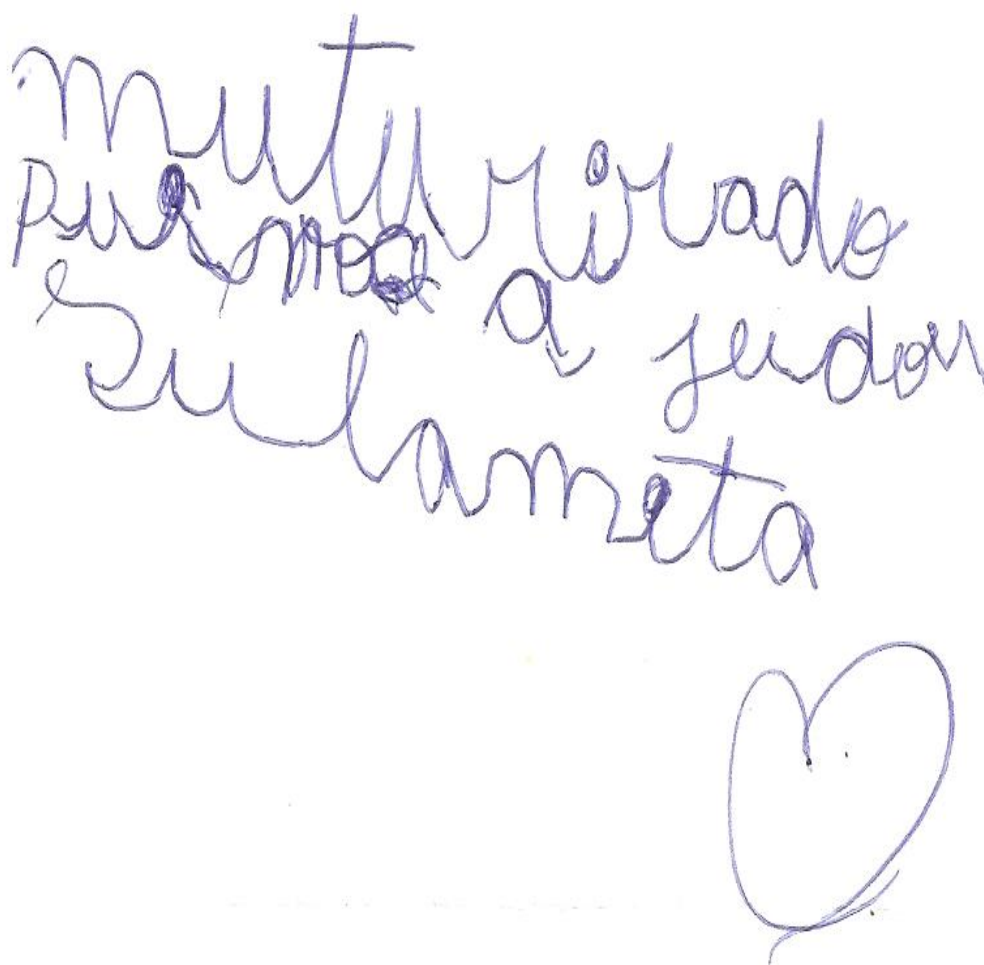 mutu rirado
pur nos a judou
Sulameta